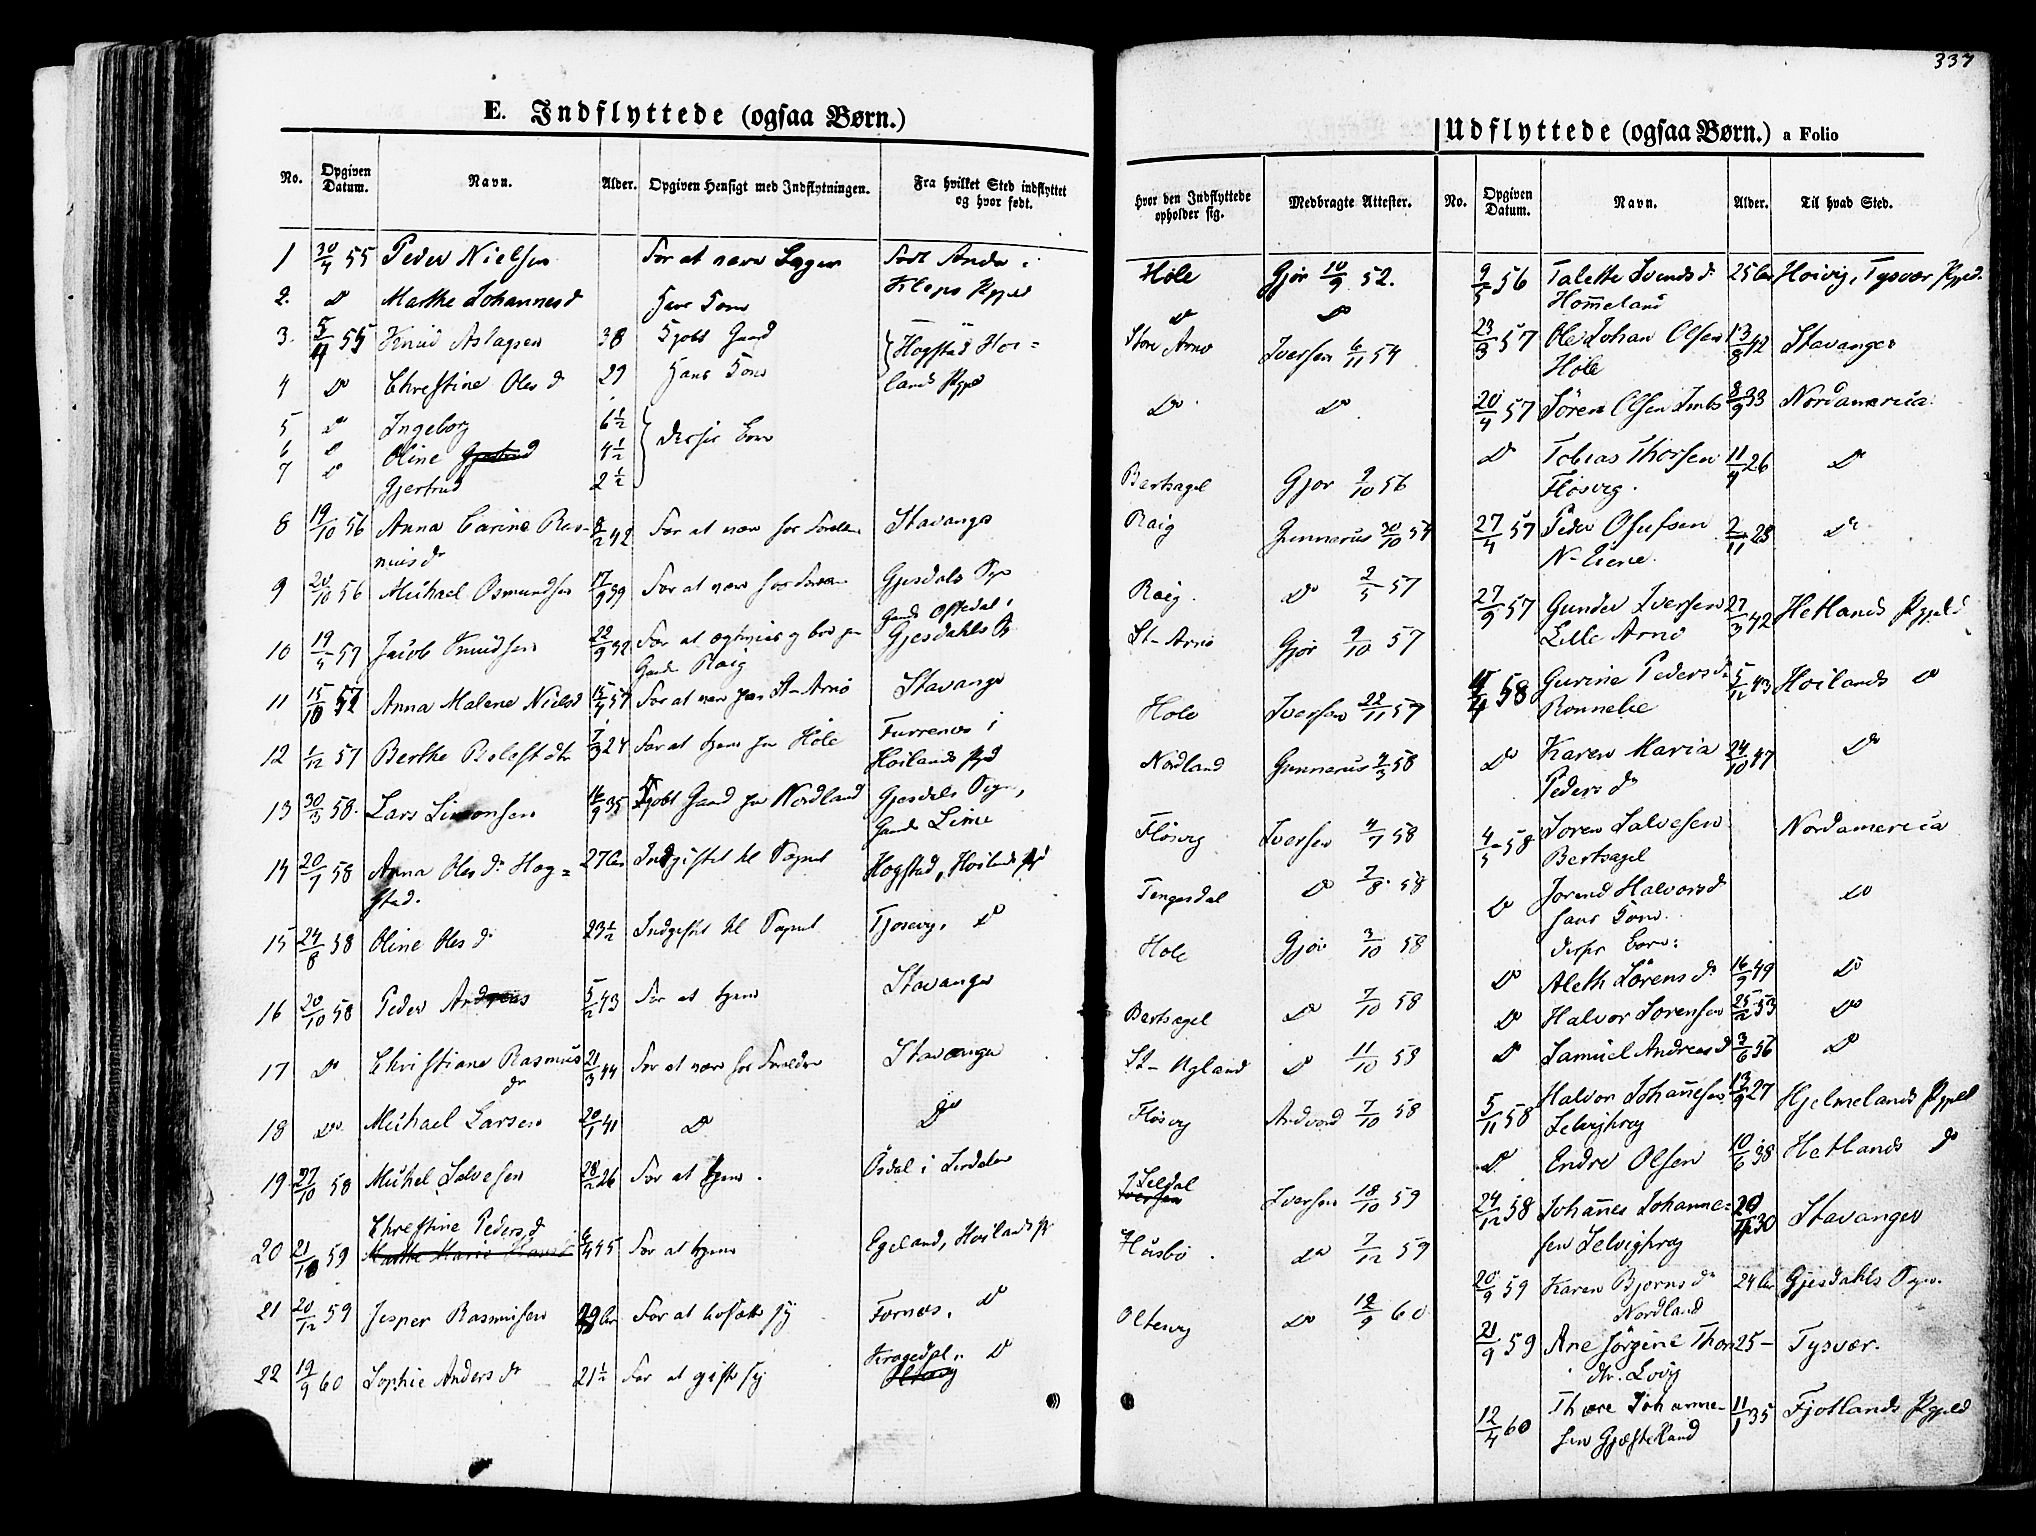 337
E. Indflyttede (ogsaa Børn.)
No. Opgiven Datum. Navn. Alder. Opgiven Hensigt med Indflytningen. Fra hvilket Sted indflyttet og hvor født.
1 30/4 55 Peder Nielsen For at være Født Anda i
Kleps Pgjeld
2. Do Marthe Johannesd
3. 5/4 55 Knud Aslagsen 38 Kjøbt Gaard Høgstad Høi=
4 Do Christine Olesd 29 Hans Kone lands Pgjeld
5 Do Ingeborg 6½ Disses Børn
6 Do Oline 4½
7 Do Gjertrud 2½
8 19/10 56 Anna Carine Ras- 8/2 42 For at være hos Stavanger
musdr
9 20/10 56 Michael Osmundsen 17/9 39 For at være hos Gjesdals
10 19/5 57 Jacob Knudsen 22/9 32 For at Gjesdahls
Raig
11 15/10 57 Anna Malene Nielsd 15/7 57 For at være paa St-Arnø Stavanger
12 1/12 57 Berthe 7/3 24 For at tjene paa Høle Furrenes i
Høilands Pgjd
13 30/3 58. Lars Simonsen 16/9 35 Kjøbt Gaard paa Nordland Gjesdals Sogn,
Gaard Lime
14 20/7 58 Anna Olesdr Høg= 27 Aar Indgiftet til Sognet Høgstad, Høilands Pgd
stad.
15 24/8 58 Oline Olesdr 23½ Indgiftet til Sognet Tjosevig, Do
16 20/10 58 Peder Andreas 5/2 43 For at tjene Stavanger
17 Do Christiane Rasmus 21/3 44 For at være hos Forældre Stavanger
dr
18 Do Michael Larsen 20/1 41 Do Do
19 27/10 58 Michel Salvesen 28/2 26 For at tjene. Ösdal i
Christine Pedersd
20 21/10 59 Marthe Marie 45 For at tjene Egeland, Høiland
21 20/12 59 Jesper Rasmusen 29 Aar For at bosætte sig Fornæs, Do
22 19/9 60 Sophie Andersdr 21½ For at gifte sig Do
Hvor den Indflyttede opholder sig. Medbragte Attester.
Høle Gjør 10/9 52.
Do Do
Store Arnø Iversen 6/11 54
Do Do
Bertsagel Gjør 9/10 56
Raig Gunnerus 30/10 54
Raig. Do 2/5 57
St-Arnø Gjør 9/10 57
Høle Iversen 22/11 57
Nordland Gunnerus 9/3 58
Flösvig Iversen 4/7 58
Tengesdal Do 7/8 58
Høle Gjør 3/10 58
Bertsagel Do 7/10 58
St-Ugland Do 11/10 58
Flösvig 7/10 58
Seldal
Iversen 18/10 59
Husbø Do 7/12 59
Oltesvig Do 12/9 60
Udflyttede (ogsaa Børn.) a Folio
No. Opgiven Datum. Navn. Alder. Til hvad Sted.
9/5 56 Talette Svendsdr 25 Aar Høivig, Tysvær Pgjld.
Hommeland
23/3 57 Ole Johan Olsen 13/8 42 Stavanger
Höle
20/4 57 Sören Olsen 8/9 33 Nordamerica
Do Tobias Thorsen 11/4 26 Do
Flösvig.
27/4 57 Peder Olufsen 2/11 28 Do
N-Eiene.
27/9 57 Gunder Iversen 27/3 42 Hetlands Pgjeld
Lille Arnø
11/4 58 Gurine Pedersdr 5/12 43 Höilands Do
Do Karen Maria 24/10 47 Do
Pedersdr
4/5 58 Søren Salvesen Nordamerica
Bertsagel
Do Jorend Halvorsdr Do
hans Kone
disses Børn:
Do Aleth Sörensdr 16/9 49 Do
Do Halvor Sørensen 25/2 53 Do
Do Samuel Andreas 3/6 56 Do
5/11 58 Halvor Johannesen 13/9 27 Hjelmelands Pgjeld
Selvighrog
Do Endre Olsen 10/6 38 Hetlands Do
24/12 58 Johannes Johanne= 20/4 30 Stavanger
sen Selvighrog
20/9 59 Karen Bjørnsdr 24 Aar Gjesdahls Sogn.
Nordland
21/9 59 Ane Jörgine Thor 25- Tysvær.
dr. Lovig
12/4 60 Thore Johanne- 11/1 35 Fjotlands Pgjeld
sen Gjesteland